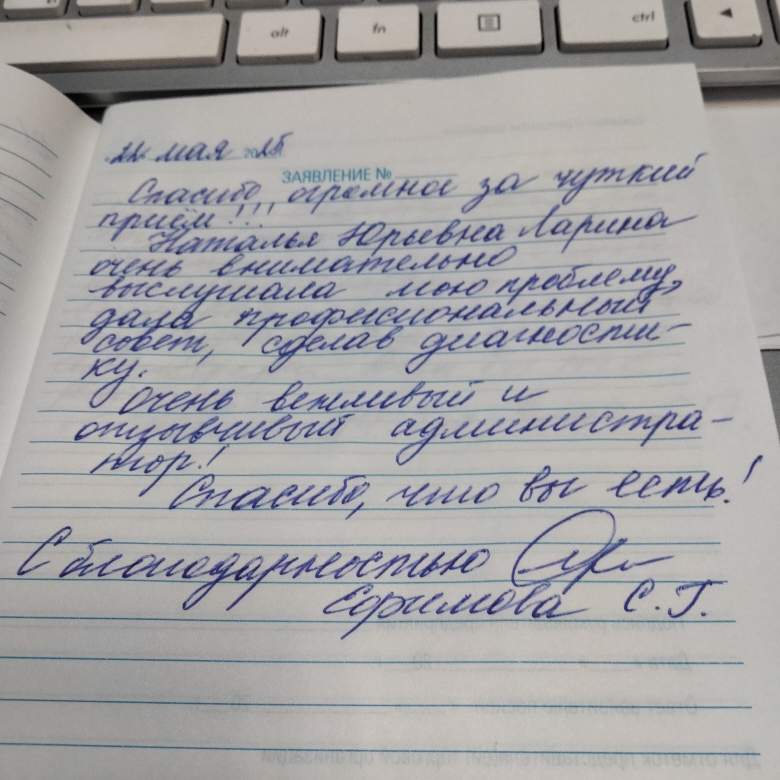 alt
fn
ctrl
"22" мая 2025
ЗАЯВЛЕНИЕ №
Спасибо огромное за чуткий
приём!!!
Наталья Юрьевна Ларина
очень внимательно
выслушала мою проблему,
дала профессиональный
совет, сделав диагности-
ку.
Очень вежливый и
отзывчивый администра-
тор!
Спасибо, что вы есть!
С благодарностью
Ефимова С.Г.